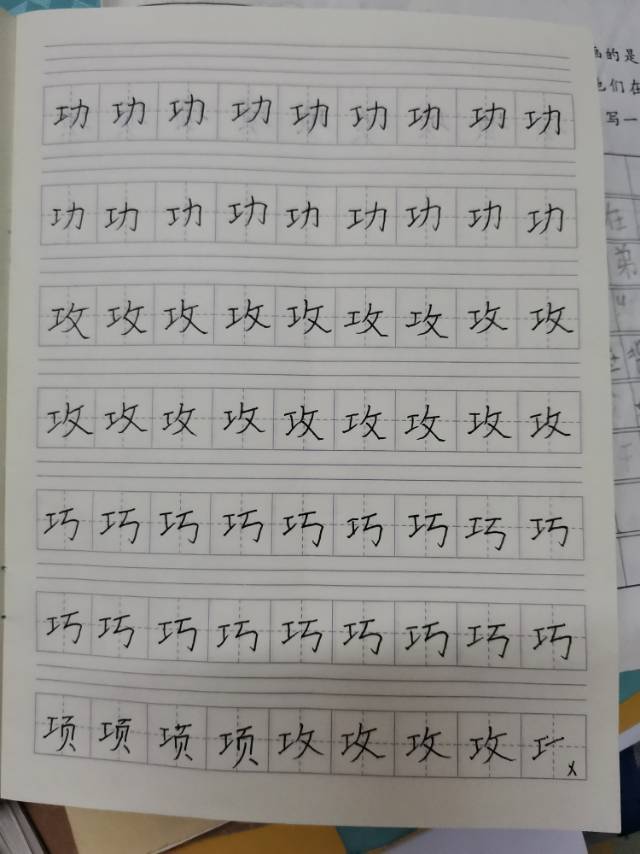 功功功功功功功功功
功功功功功功功功功
攻攻攻攻攻攻攻攻攻
攻攻攻攻攻攻攻攻攻
巧巧巧巧巧巧巧巧巧
巧巧巧巧巧巧巧巧巧
项项项项攻攻攻攻
的是
他们在
写一
在
弟